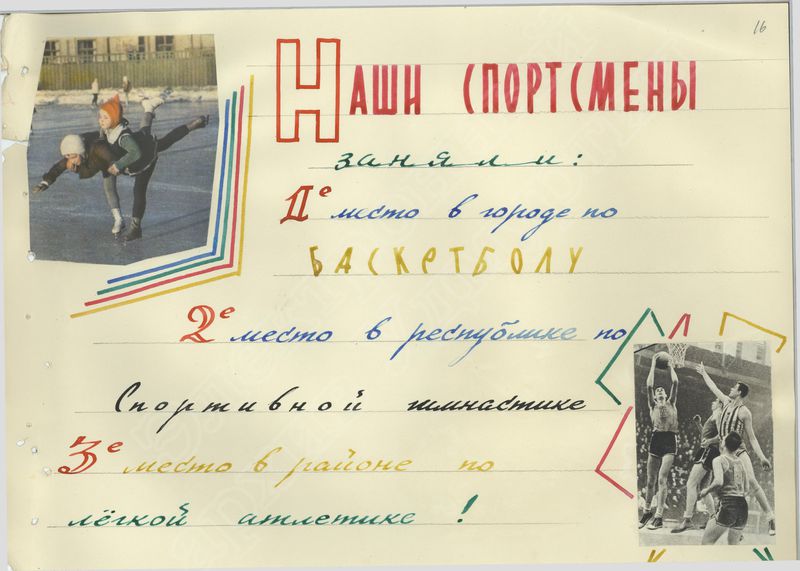 16
Наши спортсмены
заняли:
1е место в городе по
БАСКЕТБОЛУ
2е место в республике по
Спортивной гимнастике
3е место в районе по
лёгкой атлетике!